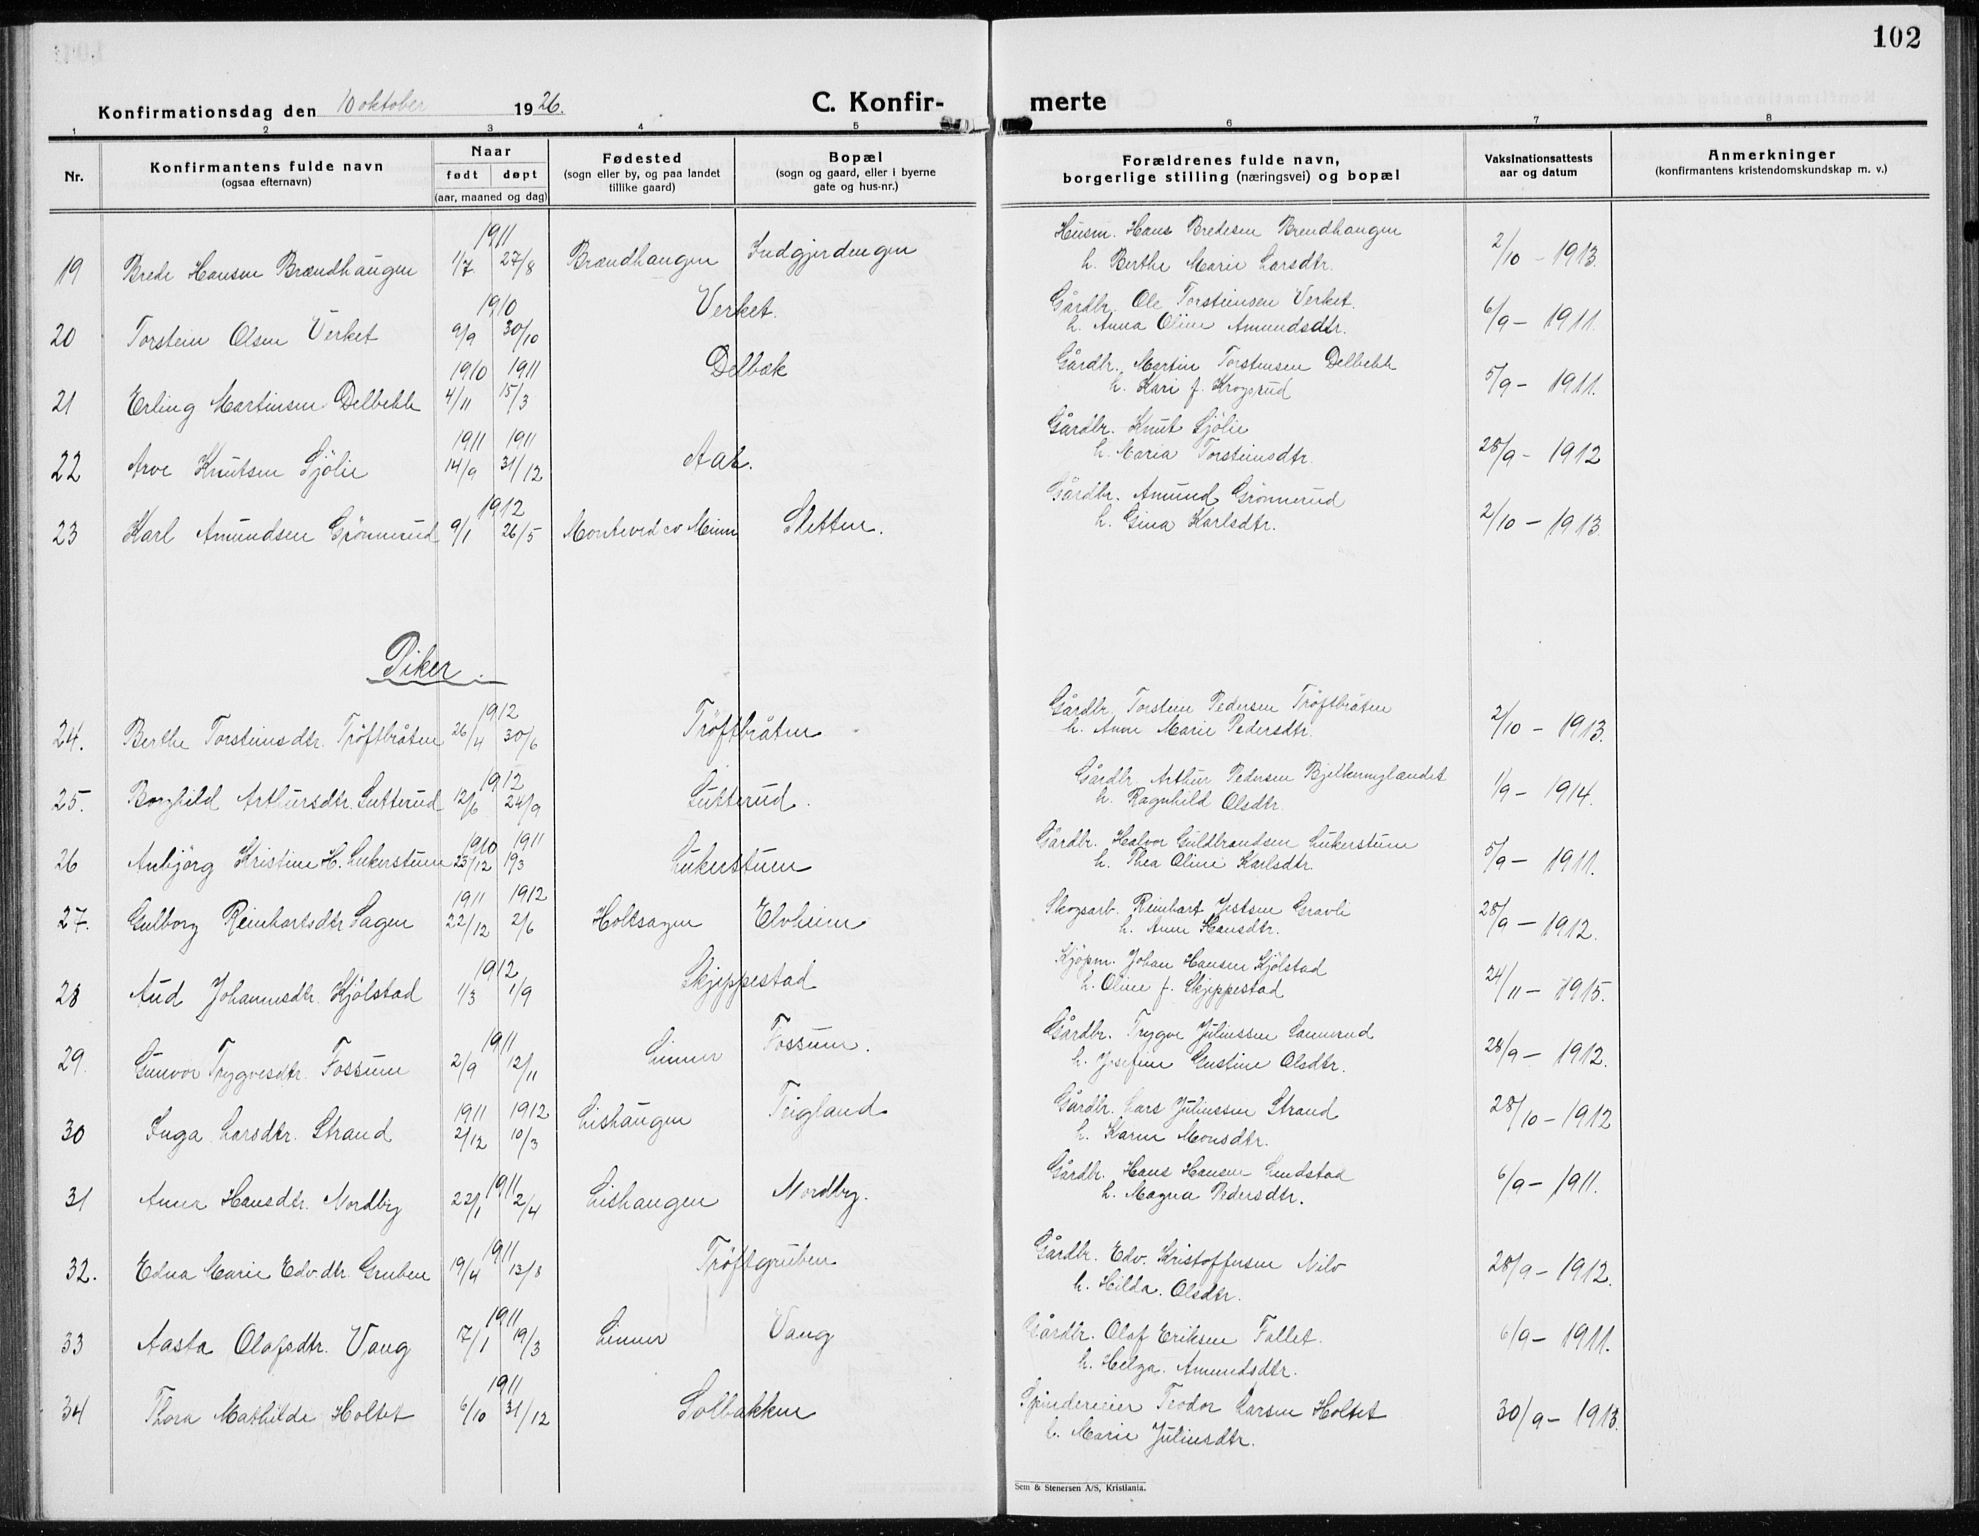 102
Konfirmationsdag den 10 oktober 1926. C. Konfir- merte
1 2 3 4 5 6 7 8
Nr. Konfirmantens fulde navn Naar Fødested Bopæl Forældrenes fulde navn, Vaksinationsattests Anmerkninger
(ogsaa efternavn) født døpt (sogn eller by, og paa landet (sogn og gaard, eller i byerne borgerlige stilling (næringsvei) og bopæl aar og datum (konfirmantens kristendomskundskap m. v.)
(aar, maaned og dag) tillike gaard) gate og hus-nr.)
1911 Husm. Hans Bredesen Brendhaugen
19 Brede Hansen Brændhaugen 1/7 27/8 Brændhaugen Indgjerdengen h. Berthe Marie Larsdtr. 2/10 - 1913.
1910 Verket. Gårdbr. Ole Torsteinsen Verket.
20 Torstein Olsen Verket 9/9 30/10 h. Anna Oline Amundsdtr. 6/9 - 1911.
1910 1911 Delbæk Gårdbr. Martin Torstensen Delbekk
21 Erling Martinsen Delbekk 4/11 15/3 h. Kari f. Krogsrud 5/9 - 1911.
1911 1911 Gårdbr. Knut Sjölie
22 Arve Knutsen Sjölie 14/9 31/12 h. Maria Torsteinsdtr. 28/9 - 1912
1912 Gårdbr. Amund Grönnerud
23 Karl Amundsen Grönnerud 9/1 26/5 Montevedeo Minn Sletten. h. Gina Karlsdtr. 2/10 - 1913.
Piker.
1912 Gårdbr. Torstein Pedersen Tröftbråten
24. Berthe Torsteinsdtr. Tröftbråten 26/4 30/6 Tröftbråten h. Anne Marie Pedersdtr. 2/10 - 1913.
1912 Gårdbr. Arthur Pedersen
25. Borghild Arthursdtr. Sutterud 12/6 24/9 Sutterud. h. Ragnhild Olsdtr. 1/9 - 1914.
1910 1911 Gårdbr. Halvor Guldbrandsen Lukerstuen
26 Anbjörg Kristine H. Lukerstuen 23/12 19/3 Lukerstuen h. Thea Oline Karlsdtr. 5/9 - 1911.
1911 1912 Skogsarb. Reinhart Gravli
27. Gulborg Reinhartsdtr Sagen 22/12 2/6 Holtsagen Elvheim h. Anne Hansdtr. 28/9 - 1912.
1912 Kjöpm. Johan Hansen Kjölstad
28 Aud Johannesdtr. Kjölstad 1/3 1/9 Skjeppestad h. Oline f. Skjeppestad 24/11 - 1915.
1911 Gårdbr. Trygve Juliussen Sannerud
29. Gunvor Trygvesdtr. Fossum 2/9 12/11 Linner Fossum. h. Josefine Gustine Olsdtr. 28/9 - 1912.
1911 1912 Gårdbr. Lars Juliussen Strand
30 Inga Larsdtr. Strand 2/12 10/3 Lishaugen Teigland h. Karen Monsdtr. 28/10 - 1912
1911 Gårdbr. Hans Hansen Lundstad
31 Anna Hansdtr. Nordby 22/1 2/4 Lishaugen Nordby. h. Magna Pedersdtr. 6/9 - 1911.
1911 Gårdbr. Edv. Kristoffersen Nilo
32. Edna Marie Edv.dtr. Gruben 19/4 13/8 Tröftgruben h. Hilda. Olsdtr. 28/9 - 1912.
1911 Gårdbr. Olaf Eriksen Fallet.
33 Aasta Olafsdtr. Vang 17/1 19/3 Linner Vang h. Helga. Amundsdtr. 6/9 - 1911.
1911 Spindereieier Teodor Larsen Holtet
34 Thora Mathilde Holtet 6/10 31/12 Solbakken h. Marie Juliusdtr. 30/9 - 1913.
Sem & Stenersen A/S, Kristiania.